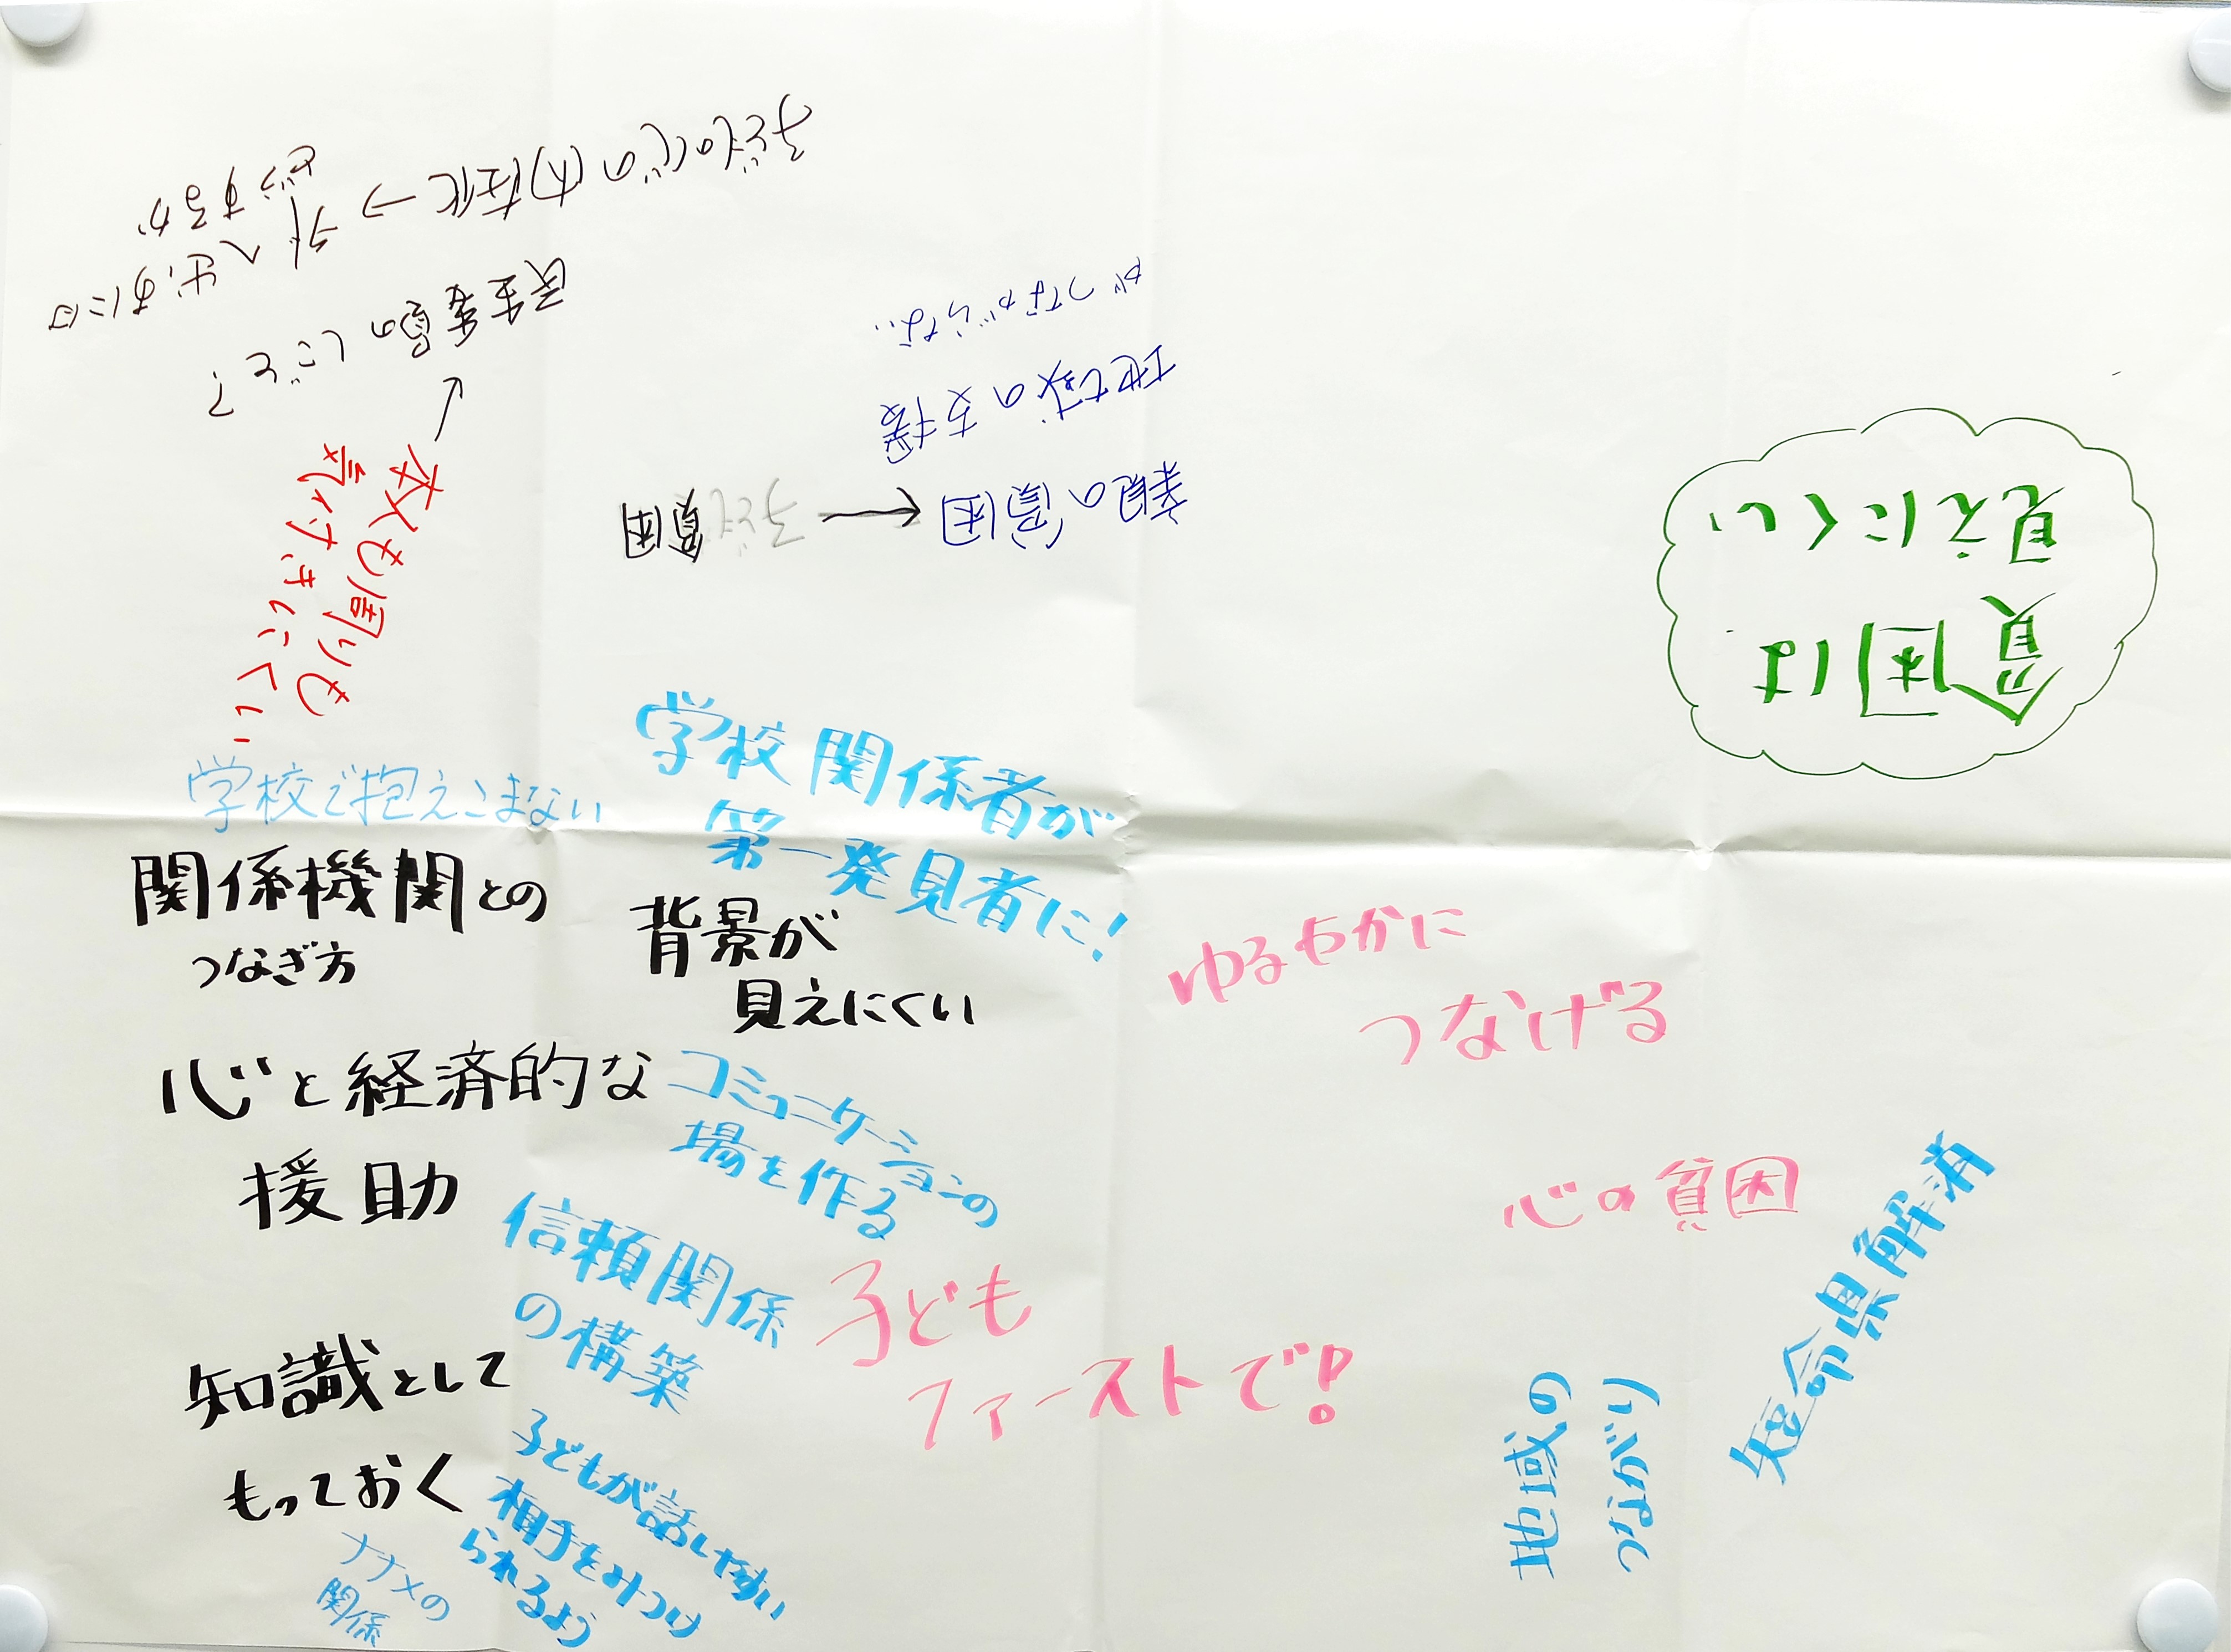 貧困は
見えにくい
親の貧困 ← 子ども貧困
地域の支援
がつながらない
内在化 → 外へ
どうするか
民生委員のしごと?
本人も周りも
気づきにくい
学校で抱えこまない
関係機関との
つなぎ方
学校関係者が
第一発見者に!
背景が
見えにくい
心と経済的な
援助
コミュニケーションの
場を作る
信頼関係
の構築
知識として
もっておく
子どもが話しやすい
相手をみつけ
られるよう
ナナメの
関係
ゆるやかに
つなげる
心の貧困
子ども
ファーストで!
地域の
つながり
短命県解消